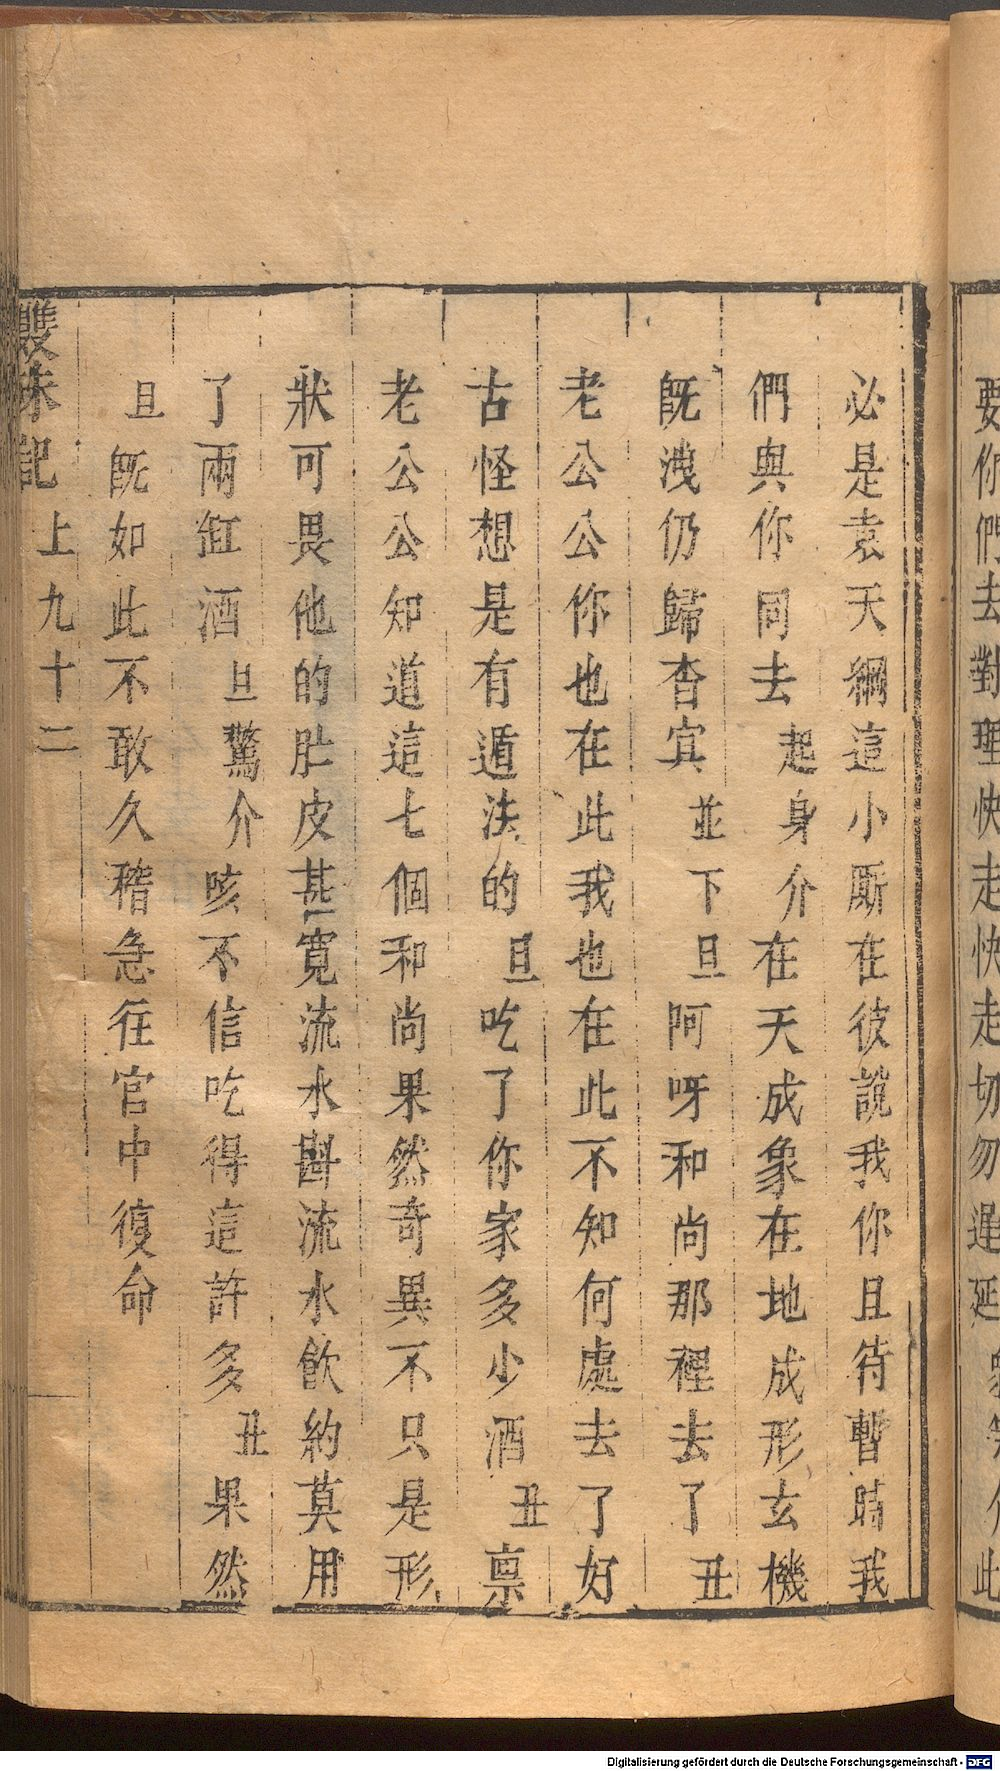 要你們去對理快走快走切勿遲延
必是袁天綱這小厮在彼説我你且待暫時我
們與你同去起身介在天成象在地成形玄機
既洩仍歸杳冥並下旦阿呀和尚那裡去了丑
老公公你也在此我也在此不知何處去了好
古怪想是有遁法的旦吃了你家多少酒丑禀
老公公知道這七個和尚果然奇異不只是形
狀可畏他的肚皮甚寛流水斟流水飲約莫用
了兩缸酒旦驚介咳不信吃得這許多丑果然
旦既如此不敢久稽急往官中復命
雙珠記
上九十二
Digitalisierung gefördert durch die Deutsche Forschungsgemeinschaft - DFG